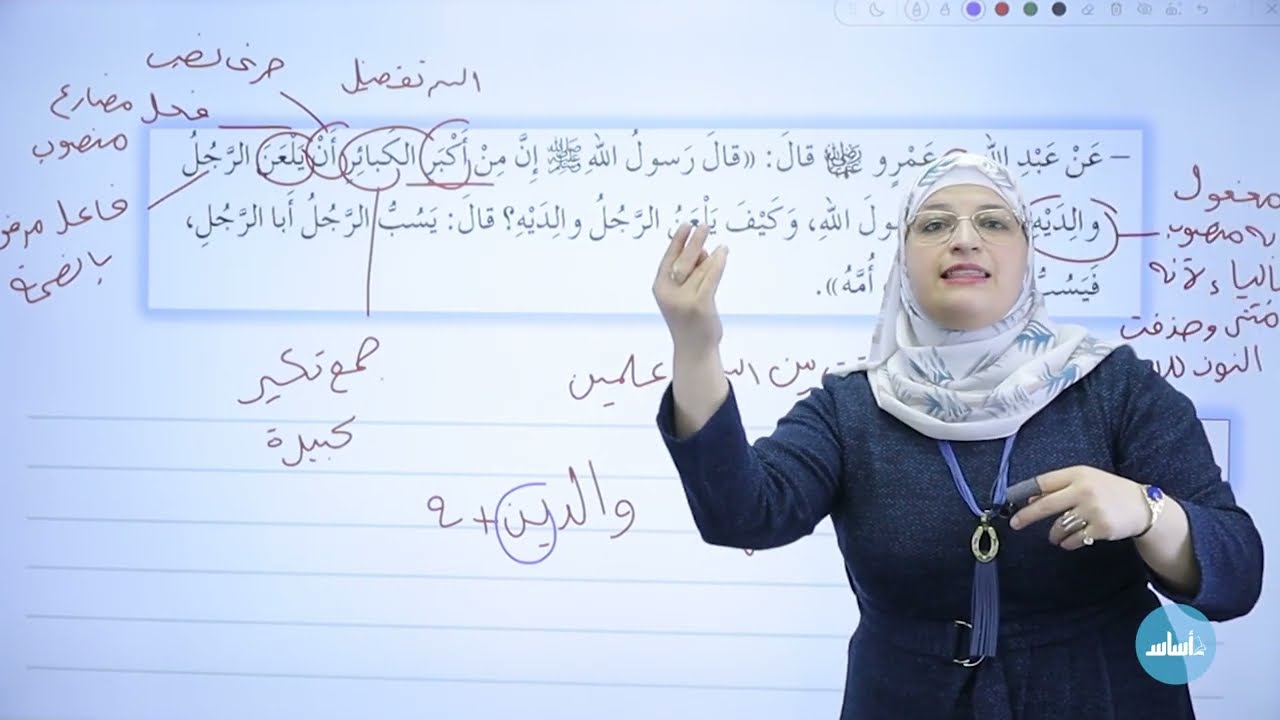 حرف نصب
اسم تفضيل
فعل مضارع
منصوب
– عَنْ عَبْدِ اللهِ عَمْرٍو ﷺ قالَ: «قالَ رَسولُ اللهِ ﷺ إِنَّ مِنْ أَكْبَرِ الكَبائِرِ أَنْ يَلْعَنَ الرَّجُلُ
والِدَيْهِ اللهِ، وَكَيْفَ يَلْعَنُ الرَّجُلُ والِدَيْهِ؟ قالَ: يَسُبُّ الرَّجُلُ أَبا الرَّجُلِ،
فَيَسُبُّ أُمَّهُ».
فاعل مرفوع
بالضمة
مفعول
به منصوب
بالياء لأنه
مثنى وحذفت
النون
جمع تكسير
كبيرة
بين
علمين
والدين + ه
أساس